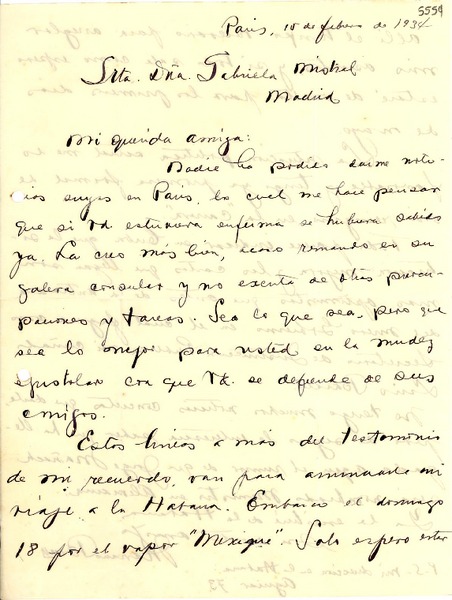 5554
Paris, 10 de febrero de 1934
Srta. Dña. Gabriela Mistral
Madrid
Mi querida amiga:
Nadie ha podido darme noti-
cias suyas en Paris, lo cual me hace pensar
que si Vd. estuviera enferma se hubiera sabido
ya. La creo más bien, acaso remando en su
galera consular y no exenta de otras preocu-
paciones y tareas. Sea lo que sea, pero que
sea lo mejor para usted en la mudez
epistolar con que Vd. se defiende de sus
amigos.
Estas líneas a más del testimonio
de mi recuerdo, van para anunciarle mi
viaje a la Habana. Embarco el domingo
18 por el vapor "Mexique". Solo espero estar